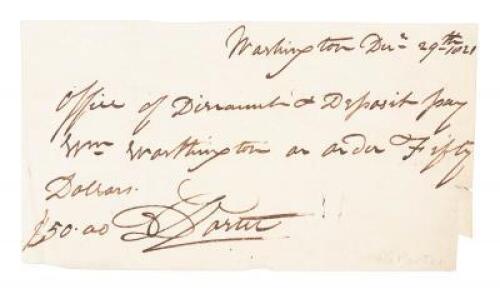 Washington Decr 29th 1821
Office of Discount & Deposit pay
Wm Worthington or order Fifty
Dollars.
$50.00 D Porter